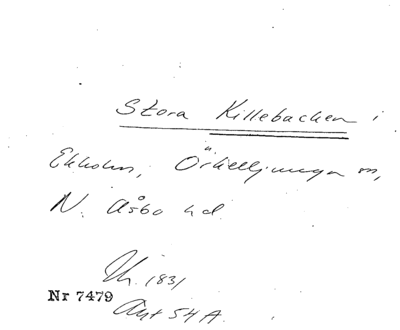 Stora Killebacken i
Ekholm, Örkelljunga sn,
N. Åsbo hd
Uh. 1831
Nr 7479
Ant 54 A.